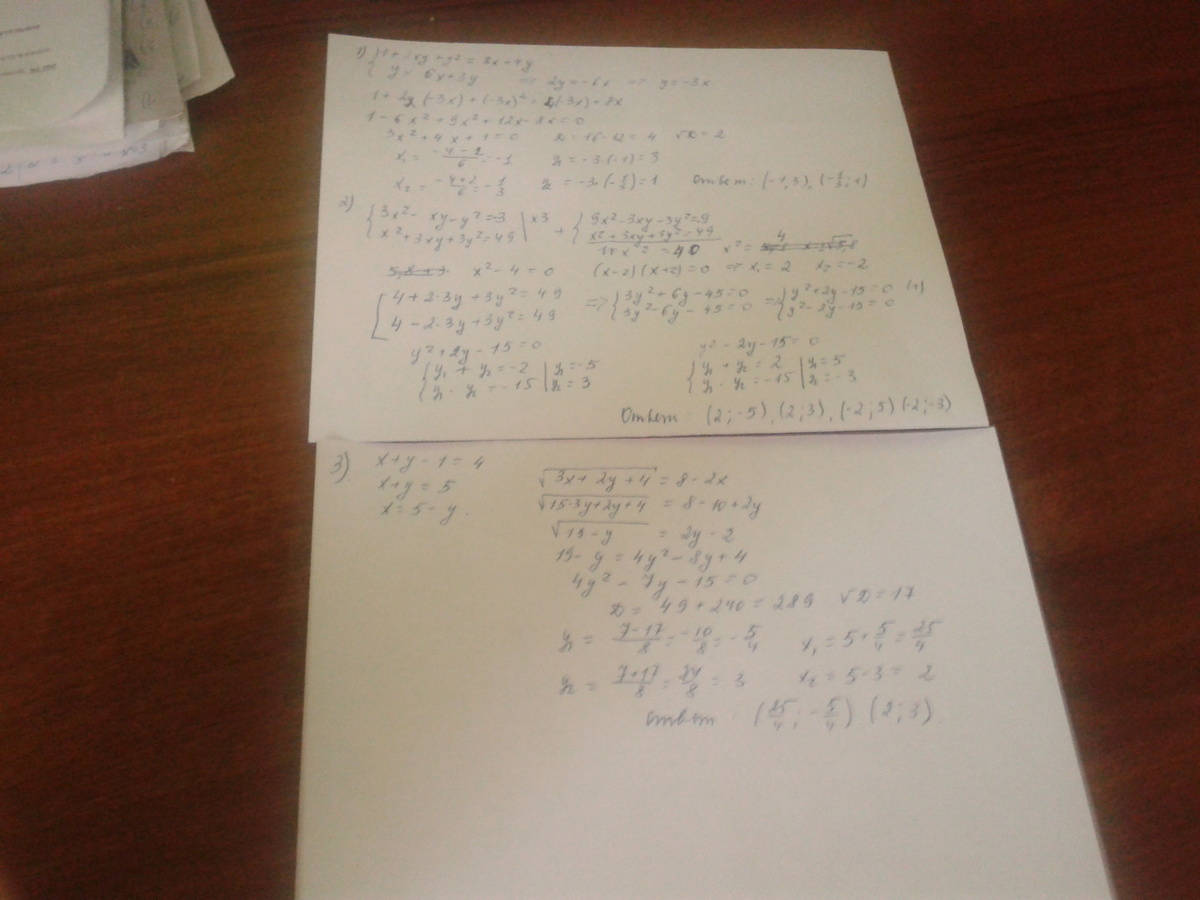 1) { 1 + 2xy + y² = 8x + 4y
{ y = 6x + 3y ⇒ 2y = -6x ⇒ y = -3x
1 + 2x(-3x) + (-3x)² = 4(-3x) + 8x
1 - 6x² + 9x² + 12x - 8x = 0
3x² + 4x + 1 = 0 D = 16 - 12 = 4 √D = 2
x₁ = (-4-2)/6 = -1 y₁ = -3·(-1) = 3
x₂ = (-4+2)/6 = -1/3 y₂ = -3·(-1/3) = 1 Ответ: (-1; 3), (-1/3; 1)
2) { 3x² - xy - y² = 3 | x3 + { 9x² - 3xy - 3y² = 9
{ x² + 3xy + 3y² = 49 | { x² + 3xy + 3y² = 49
x² = 40 x² = 4
x² - 4 = 0 (x-2)(x+2) = 0 ⇒ x₁ = 2 x₂ = -2
[ 4 + 2·3y + 3y² = 49 ⇒ { 3y² + 6y - 45 = 0 ⇒ { y² + 2y - 15 = 0
[ 4 - 2·3y + 3y² = 49 { 3y² - 6y - 45 = 0 { y² - 2y - 15 = 0
y² + 2y - 15 = 0 y² - 2y - 15 = 0
{ y₁ + y₂ = -2 | y₁ = -5 { y₁ + y₂ = 2 | y₁ = 5
{ y₁ · y₂ = -15 | y₂ = 3 { y₁ · y₂ = -15 | y₂ = -3
Ответ: (2; -5), (2; 3), (-2; 5) (-2; -3)
3) x + y - 1 = 4 √(3x + 2y + 4) = 8 - 2x
x + y = 5 √(15-3y+2y+4) = 8 - 10 + 2y
x = 5 - y. √(19 - y) = 2y - 2
19 - y = 4y² - 8y + 4
4y² - 7y - 15 = 0
D = 49 + 240 = 289 √D = 17
y₁ = (7-17)/8 = -10/8 = -5/4 x₁ = 5 + 5/4 = 25/4
y₂ = (7+17)/8 = 24/8 = 3 x₂ = 5-3 = 2
Ответ: (25/4; -5/4) (2; 3)